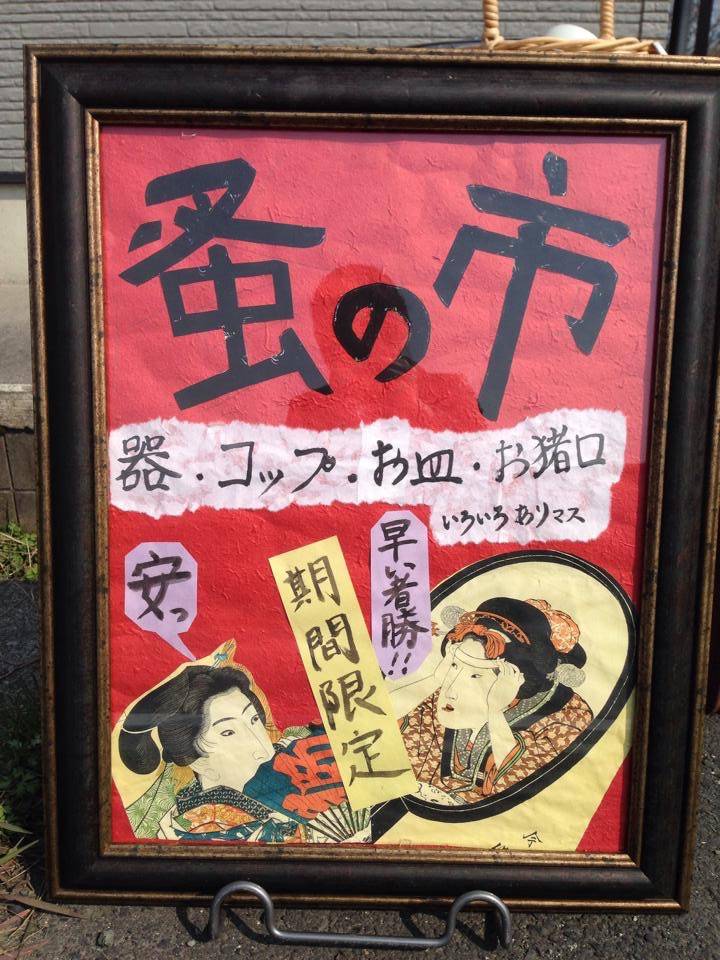 蚤の市
器・コップ・お皿・お猪口
いろいろありマス
安っ
期間限定
早い者勝!!